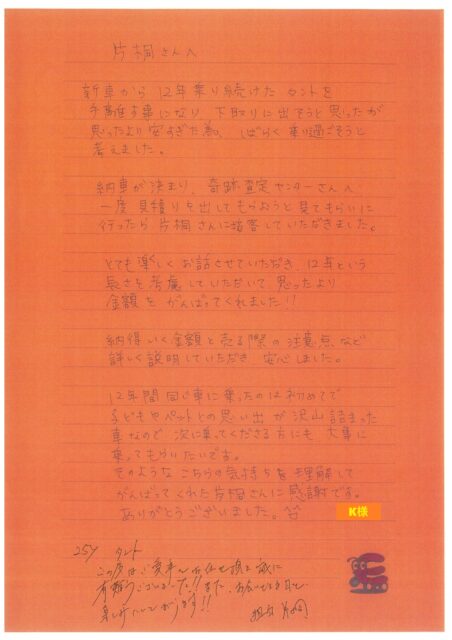 片桐さんへ
新車から12年乗り続けたタントを
手離す事になり、下取りに出そうと思ったが
思ったより安すぎた為、しばらく乗り過ごそうと
考えました。
納車が決まり、奇跡査定センターさんへ
一度見積りを出してもらおうと見てもらいに
行ったら片桐さんに接客していただきました。
とても楽しくお話させていただき、12年という
長さを考慮していただいて思ったより
金額をがんばってくれました!!
納得いく金額と売る際の注意点など
詳しく説明していただき、安心しました。
12年間同じ車に乗ったのは初めてで
子どもやペットとの思い出が沢山詰まった
車なので、次に乗ってくださる方にも大事に
乗ってもらいたいです。
そのようなこちらの気持ちを理解して
がんばってくれた片桐さんに感謝です。
ありがとうございました。
K様
257 タント
この度はご愛車の お任せ頂き誠に
有難うございました!! また、お会いできる日を
楽しみにしております!!
担当 片桐